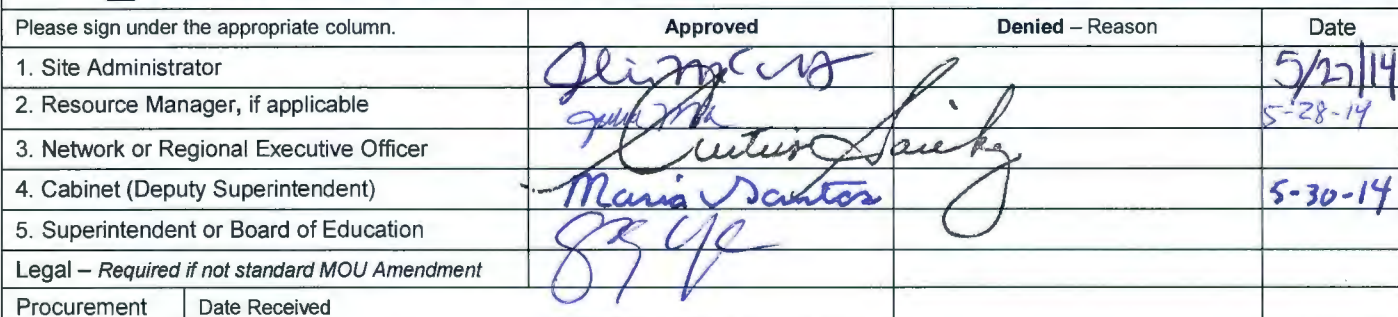 Please sign under the appropriate column. Approved Denied – Reason Date
1. Site Administrator 5/27/14
2. Resource Manager, if applicable 5-28-14
3. Network or Regional Executive Officer
4. Cabinet (Deputy Superintendent) Maria Santos 5-30-14
5. Superintendent or Board of Education
Legal – Required if not standard MOU Amendment
Procurement Date Received